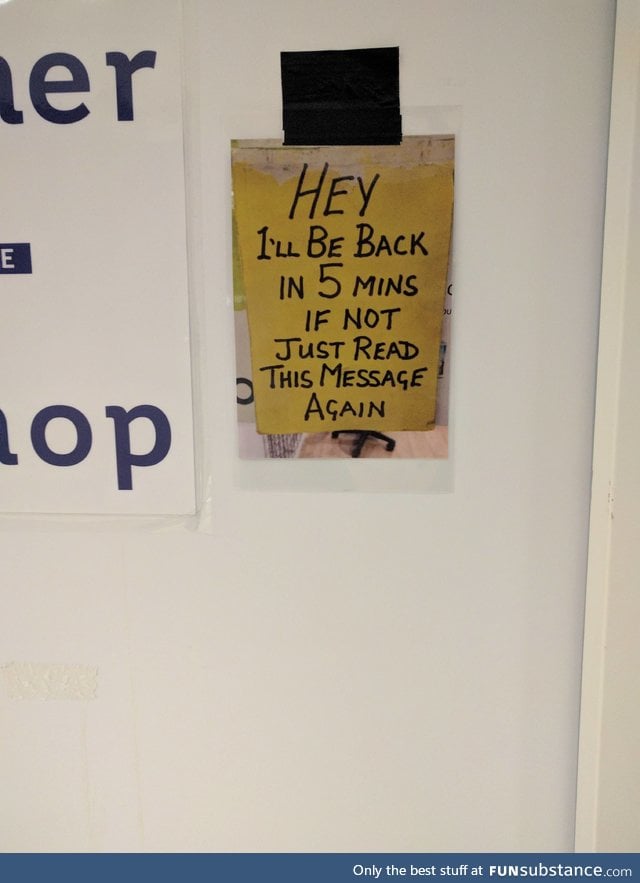 er
E
op
HEY
I'LL BE BACK
IN 5 MINS
IF NOT
JUST READ
THIS MESSAGE
AGAIN
Only the best stuff at FUNsubstance.com